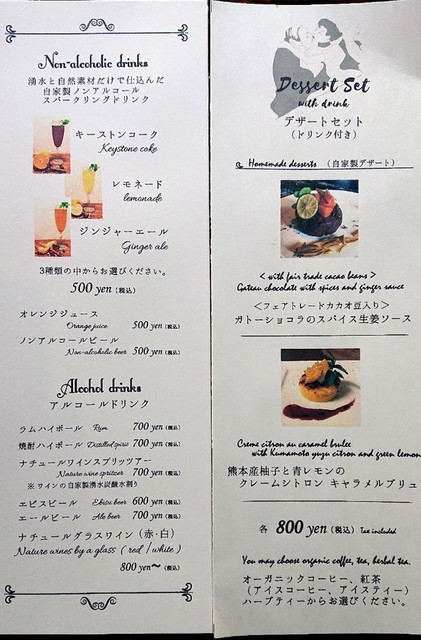 Non-alcoholic drinks
湧水と自然素材だけで仕込んだ
自家製ノンアルコール
スパークリングドリンク
キーストンコーク
Keystone coke
レモネード
lemonade
ジンジャーエール
Ginger ale
3種類の中からお選びください。
500 yen (税込)
オレンジジュース
Orange juice 500 yen (税込)
ノンアルコールビール
Non-alcoholic beer 500 yen (税込)
Alcohol drinks
アルコールドリンク
ラムハイボール Rum 700 yen (税込)
焼酎ハイボール Distilled spirit 700 yen (税込)
ナチュールワインスプリッツアー
Nature wine spritzer 700 yen (税込)
※ワインの自家製湧水炭酸水割り
エビスビール Ebisu beer 600 yen (税込)
エールビール Ale beer 700 yen (税込)
ナチュールグラスワイン (赤・白)
Nature wines by a glass ( red / white )
800 yen〜 (税込)
Dessert Set
with drink
デザートセット
(ドリンク付き)
Homemade desserts (自家製デザート)
< with fair trade cacao beans >
Gateau chocolate with spices and ginger sauce
<フェアトレードカカオ豆入り>
ガトーショコラのスパイス生姜ソース
Creme citron au caramel brulee
with Kumamoto yuzu citron and green lemon
熊本産柚子と青レモンの
クレームシトロン キャラメルブリュ
各 800 yen (税込) Tax included
You may choose organic coffee, tea, herbal tea.
オーガニックコーヒー、紅茶
(アイスコーヒー、アイスティー)
ハーブティーからお選びください。